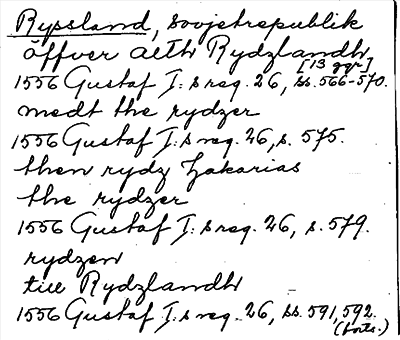 Ryssland, sovjetrepublik
öffver alth Rydzlandh
[13 ggr]
1556 Gustaf I:s reg. 26, ss. 566-570.
medt the rydzer
1556 Gustaf I:s reg. 26, s. 575.
then rydz Zakarias
the rydzer
1556 Gustaf I:s reg. 26, s. 579.
rydzen
till Rydzlandh
1556 Gustaf I:s reg. 26, ss. 591, 592.
(forts.)